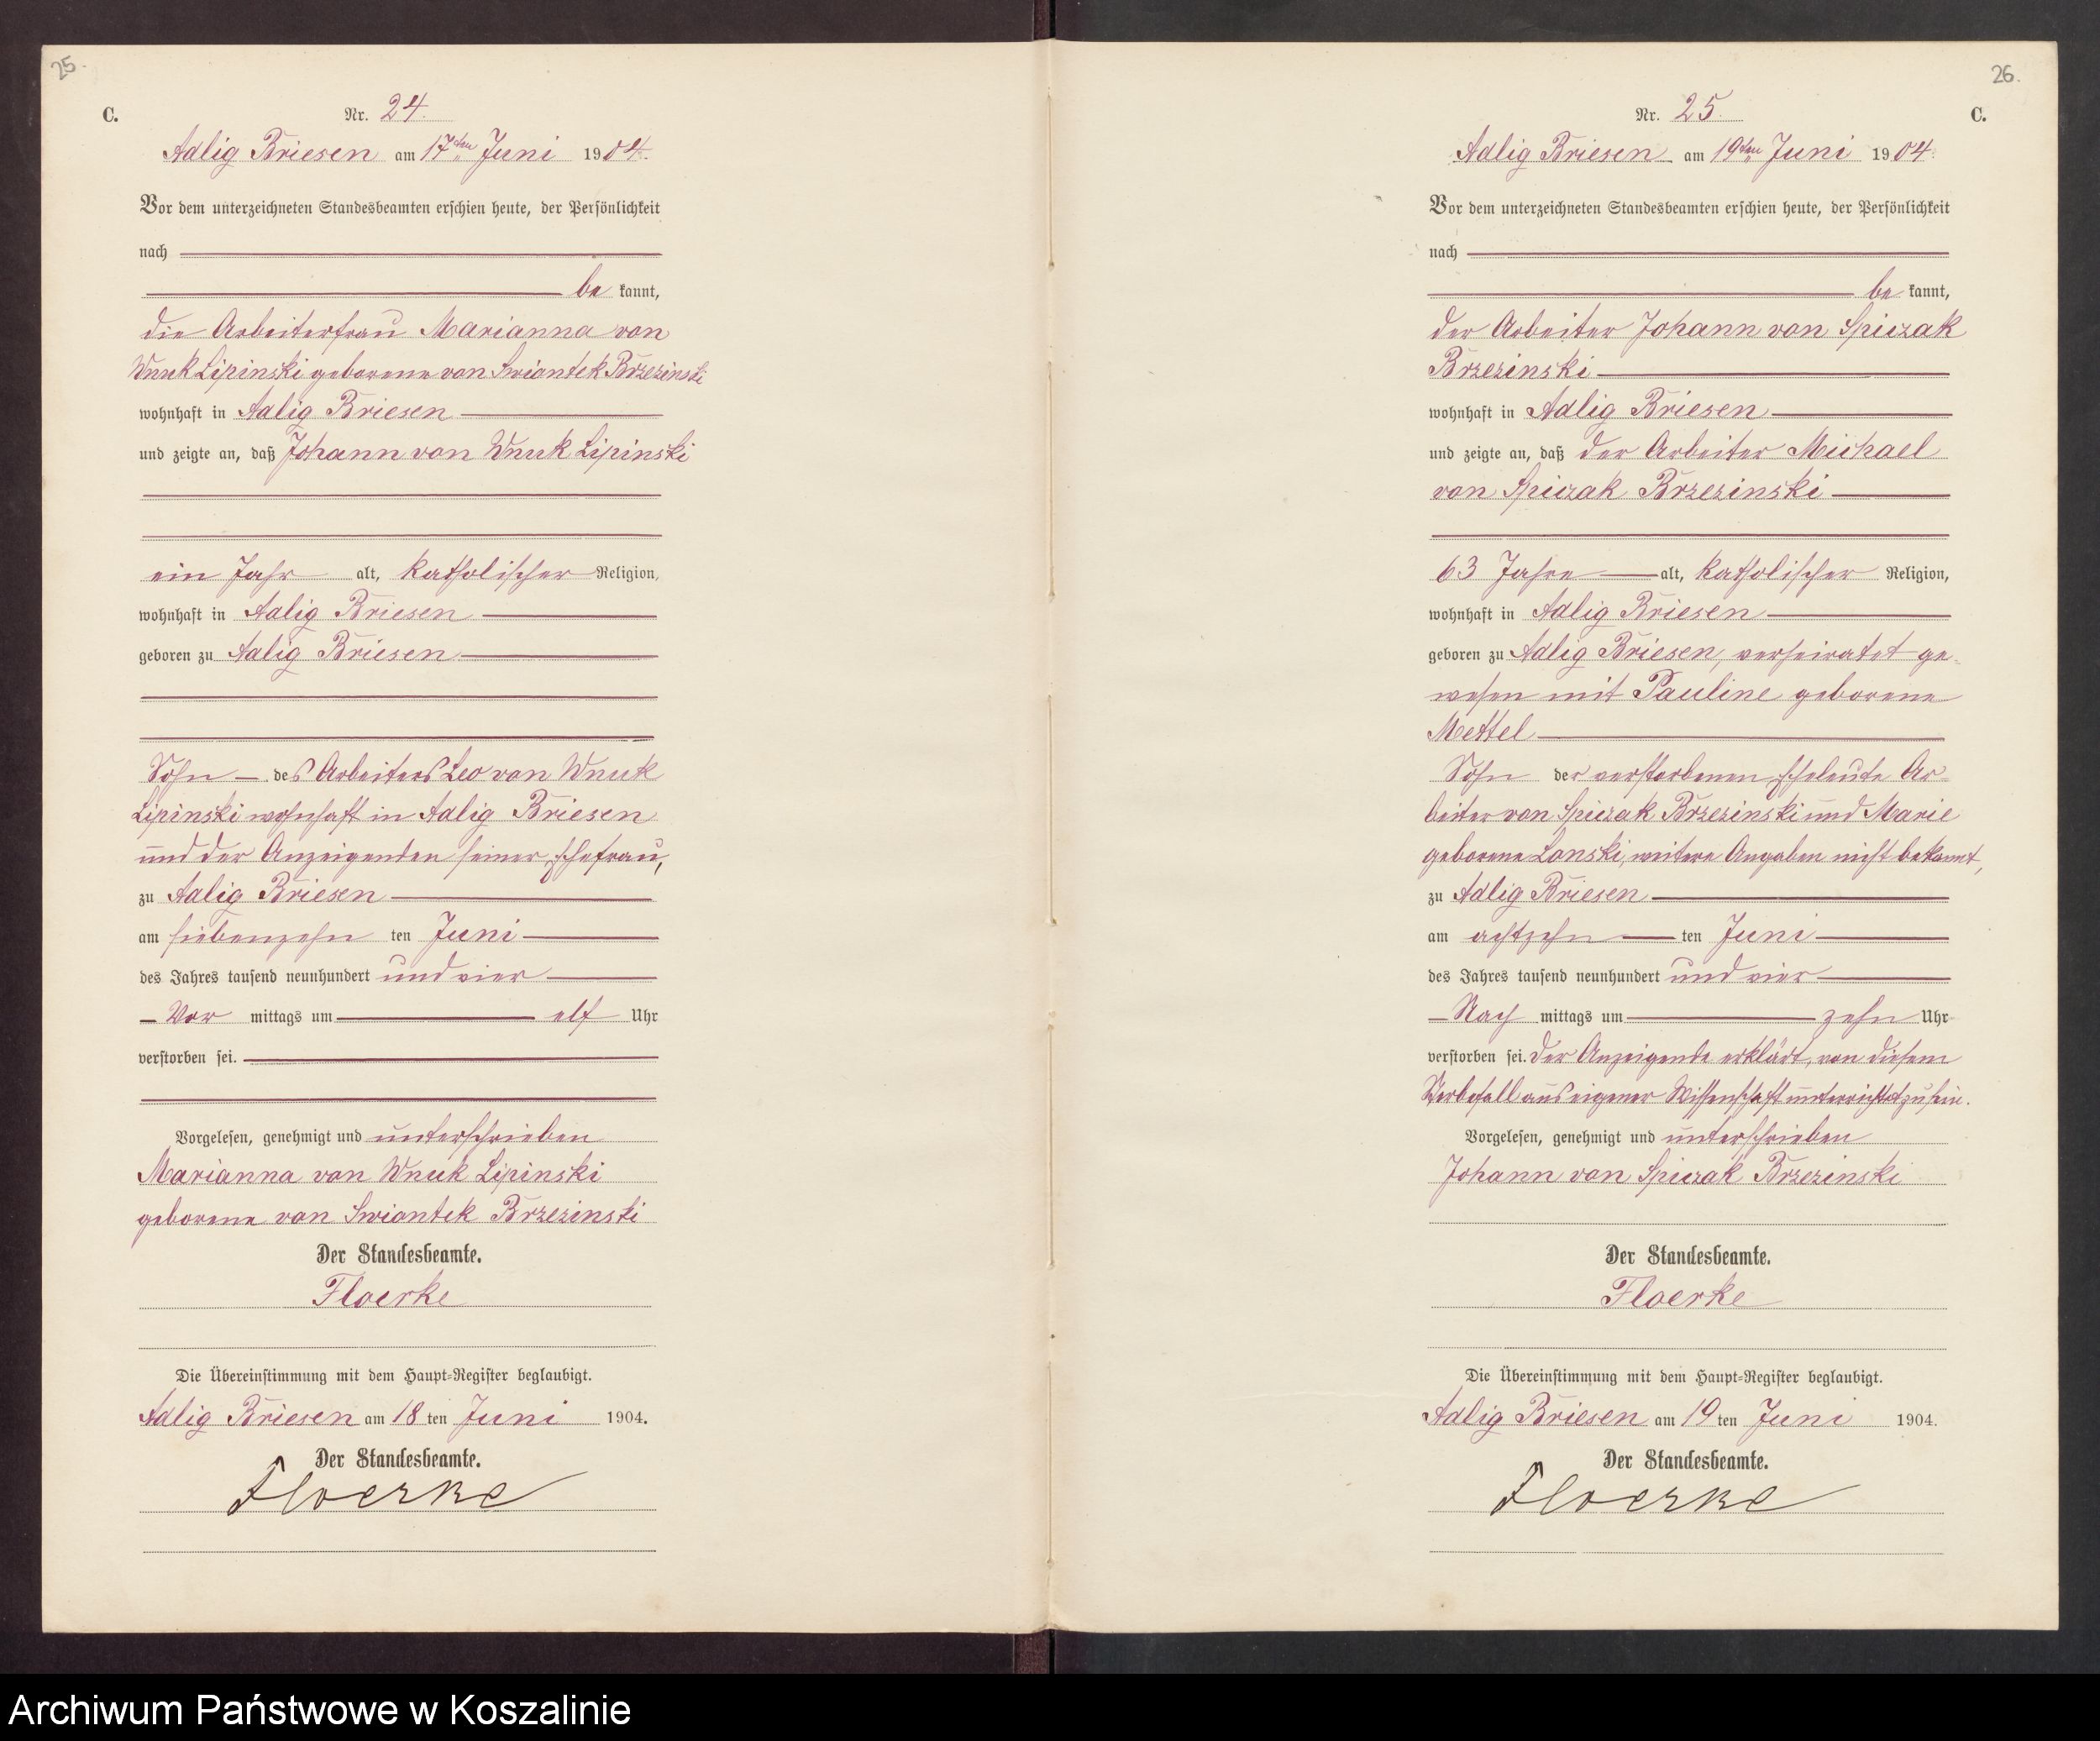 25.
C.
Nr. 24.
Adlig Briesen am 17ten Juni 1904.
Vor dem unterzeichneten Standesbeamten erschien heute, der Persönlichkeit
nach
be kannt,
die Arbeiterfrau Marianna von
Wnuk Lipinski geborene von Swiontek Brzezinski
wohnhaft in Adlig Briesen
und zeigte an, daß Johann von Wnuk Lipinski
ein Jahr alt, katholischer Religion,
wohnhaft in Adlig Briesen
geboren zu Adlig Briesen
Sohn des Arbeiters Leo von Wnuk
Lipinski wohnhaft in Adlig Briesen
und der Anzeigenden seiner Ehefrau,
zu Adlig Briesen
am siebenzehn ten Juni
des Jahres tausend neunhundert und vier
Vor mittags um elf Uhr
verstorben sei.
Vorgelesen, genehmigt und unterschrieben
Marianna von Wnuk Lipinski
geborene von Swiontek Brzezinski
Der Standesbeamte.
Floerke
Die Übereinstimmung mit dem Haupt-Register beglaubigt.
Adlig Briesen am 18 ten Juni 1904.
Der Standesbeamte.
Floerke
26.
Nr. 25.
C.
Adlig Briesen am 19ten Juni 1904.
Vor dem unterzeichneten Standesbeamten erschien heute, der Persönlichkeit
nach
be kannt,
der Arbeiter Johann von Spiczak
Brzezinski
wohnhaft in Adlig Briesen
und zeigte an, daß der Arbeiter Michael
von Spiczak Brzezinski
63 Jahre alt, katholischer Religion,
wohnhaft in Adlig Briesen
geboren zu Adlig Briesen, verheiratet ge-
wesen mit Pauline geborene
Mettel
Sohn der verstorbenen Eheleute Ar-
beiter von Spiczak Brzezinski und Marie
geborene Lonski, weitere Angaben nicht bekannt,
zu Adlig Briesen
am achtzehn ten Juni
des Jahres tausend neunhundert und vier
Nach mittags um zehn Uhr
verstorben sei. Der Anzeigende erklärt, von diesem
Sterbefall aus eigener Wissenschaft unterrichtet zu sein.
Vorgelesen, genehmigt und unterschrieben
Johann von Spiczak Brzezinski
Der Standesbeamte.
Floerke
Die Übereinstimmung mit dem Haupt-Register beglaubigt.
Adlig Briesen am 19 ten Juni 1904.
Der Standesbeamte.
Floerke
Archiwum Państwowe w Koszalinie